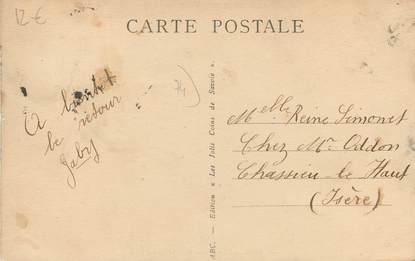 12 €
CARTE POSTALE
74
A bientôt
le
retour
Gaby
ABC. — Edition « Les Jolis Coins de Savoie ».
Melle Reine Simonet
Chez Mr Oddon
Chassieu-le Haut
(Isère)